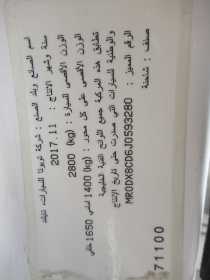 اسم الصانع وبلد الصنع : شركة تويوتا للسيارات، تايلند
سنة وشهر الانتاج : 2017.11
الوزن الأقصى للسيارة : (kg) 2800
الوزن الأقصى على كل محور : (kg) 1400 أمامي 1650 خلفي
تطابق هذه المركبة جميع اللوائح الفنية الخليجية
والوطنية للسيارات التي صدرت حتى تاريخ الانتاج
الرقم المميز : MR0DX8CD6J0593280
صنف : شاحنة
71100